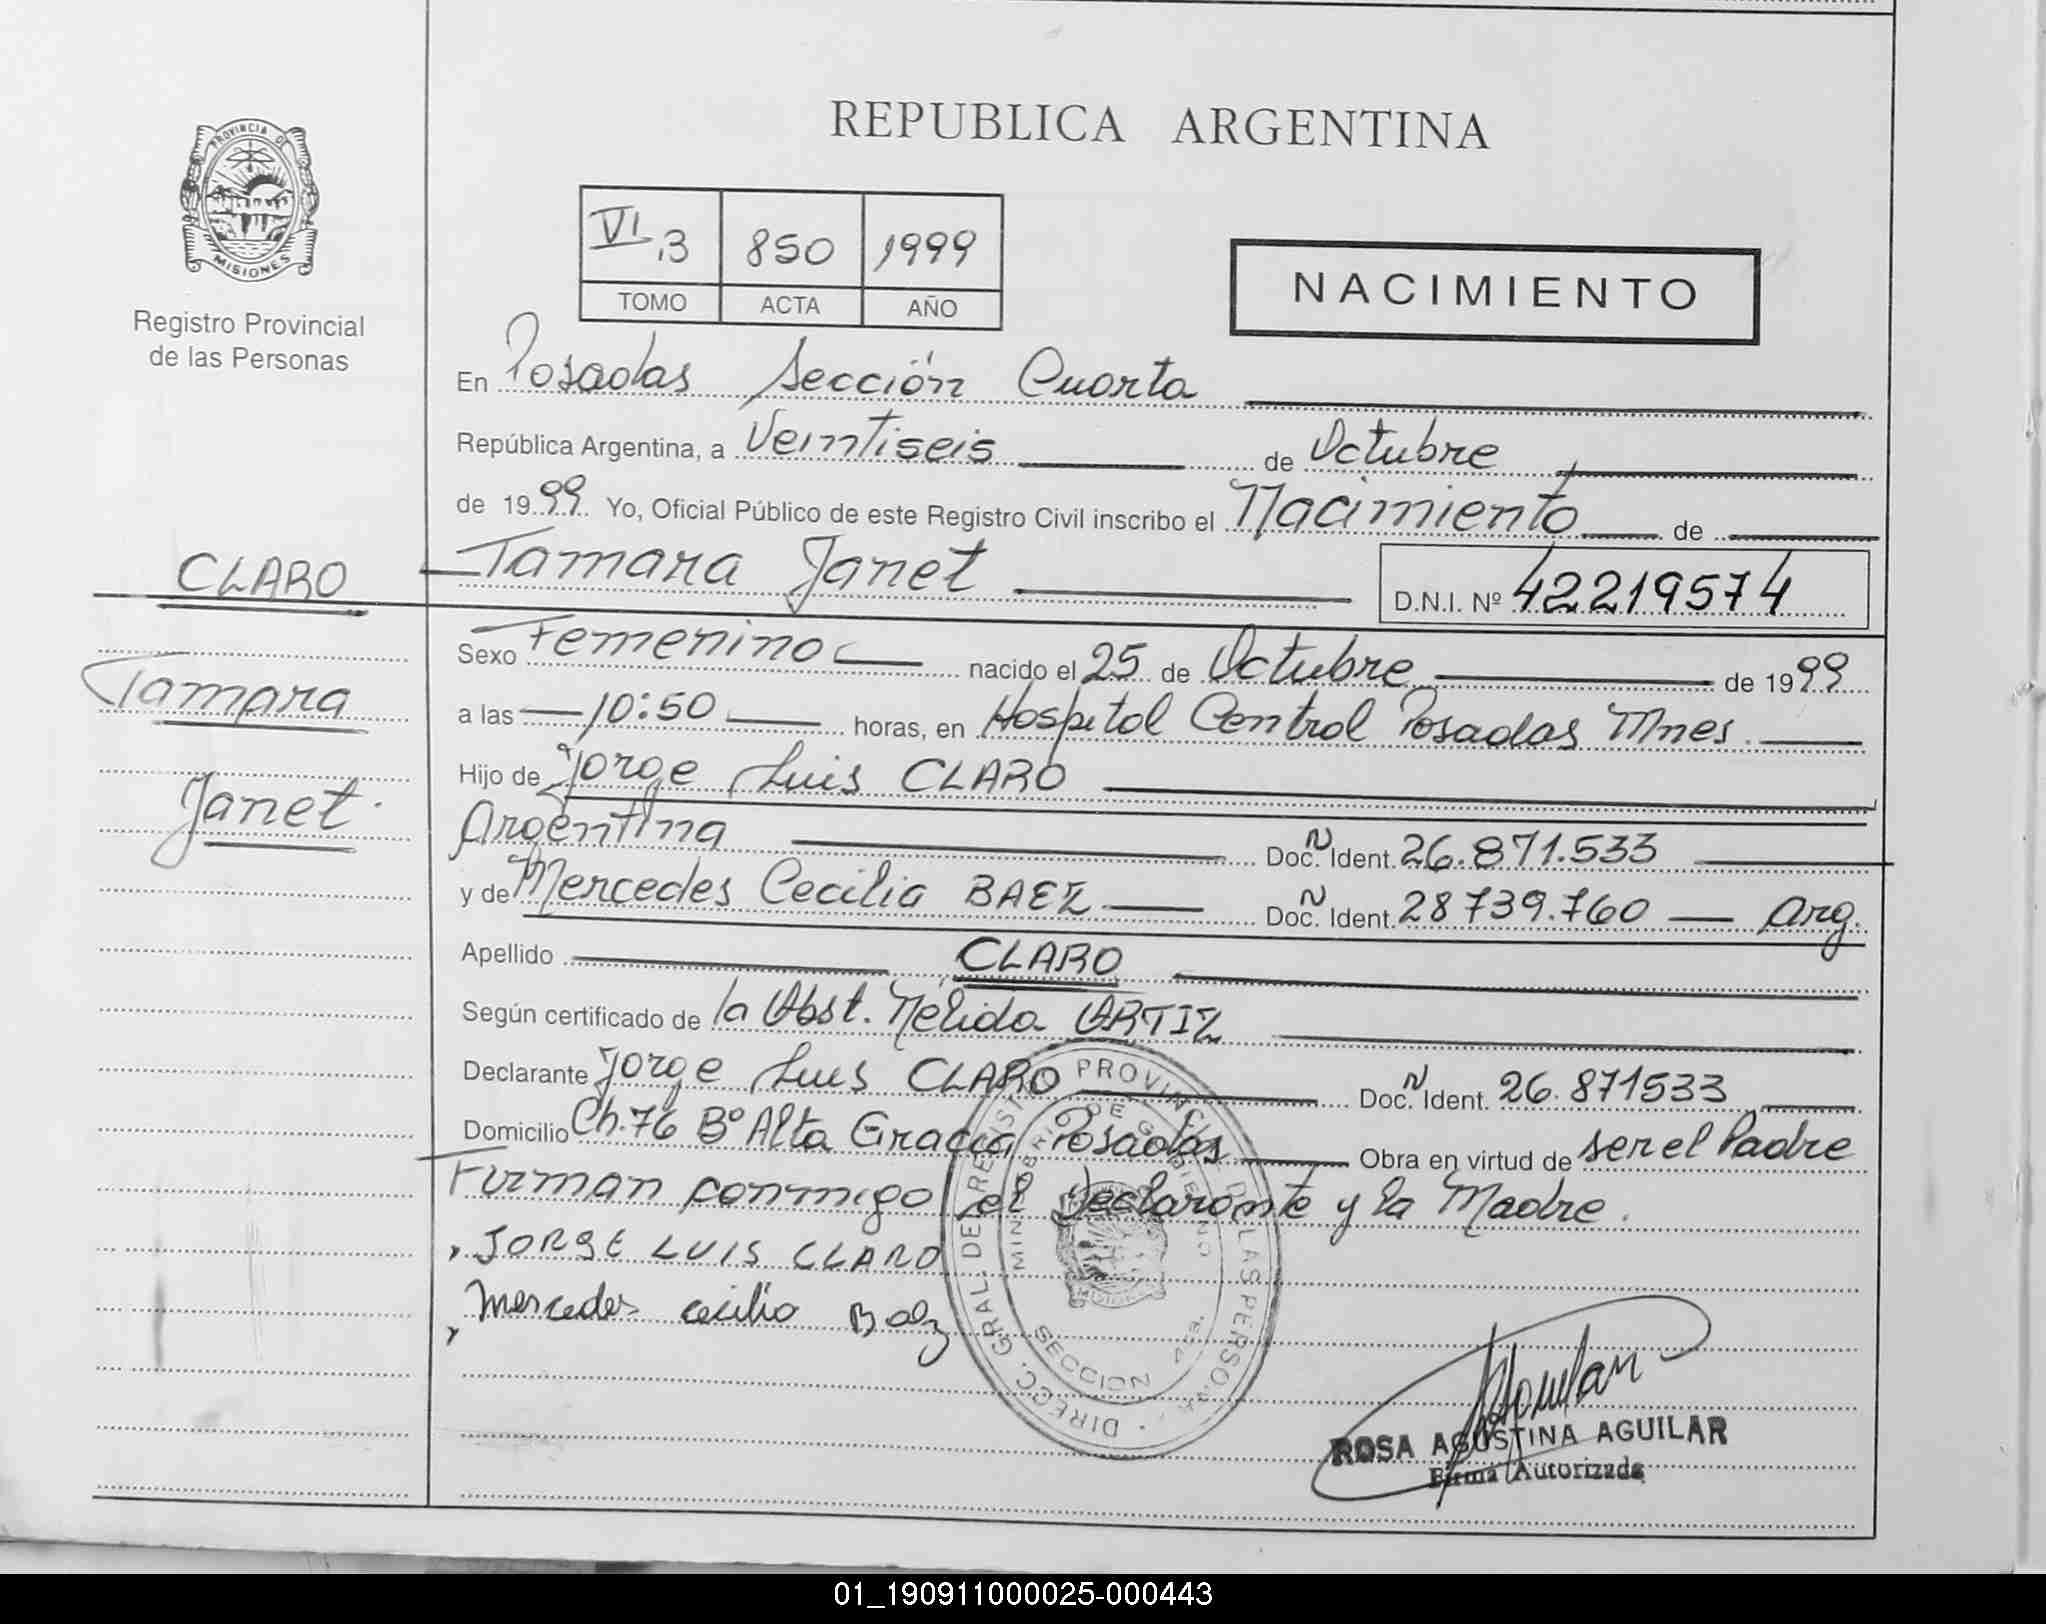 REPUBLICA ARGENTINA
PROVINCIA DE
MISIONES
Registro Provincial
de las Personas
VI 3 850 1999
TOMO ACTA AÑO
NACIMIENTO
En Posadas Sección Cuarta
República Argentina, a Veintiseis de Octubre
de 1999 Yo, Oficial Público de este Registro Civil inscribo el Nacimiento de
CLARO
Tamara Janet
D.N.I. Nº 42219574
Tamara
Janet.
Sexo Femenino nacido el 25 de Octubre de 1999
a las 10:50 horas, en Hospital Central Posadas Mnes.
Hijo de Jorge Luis CLARO
Argentina Doc. Ident. 26.871.533
y de Mercedes Cecilia BAEZ Doc. Ident. 28739.760 Arg.
Apellido CLARO
Según certificado de la Obst. Nélida ORTIZ
Declarante Jorge Luis CLARO Doc. Ident. 26.871533
Domicilio Ch. 76 Bº Alta Gracia Posadas Obra en virtud de ser el Padre
Firman conmigo el Declarante y la Madre.
JORGE LUIS CLARO
Mercedes Cecilia Baez
DIRECC. GRAL. DE REGISTRO PROVINCIAL DE LAS PERSONAS
MINISTERIO DE GOBIERNO
MISIONES
SECCION 4ta.
ROSA AGUSTINA AGUILAR
Firma Autorizada
01_190911000025-000443